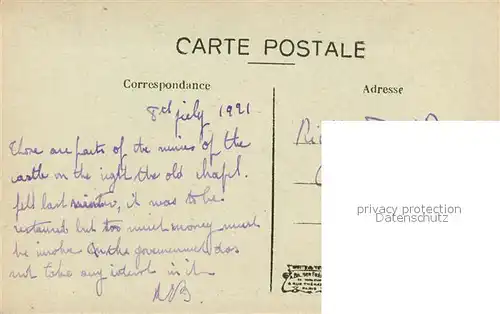 CARTE POSTALE
Correspondance
Adresse
8th july 1921
There are parts of the ruines of the
castle on the right the old chapl.
fell last winter, it was to be
restaured but too much money must
be invoke on the governement dos
not take any interest in it
privacy protection
Datenschutz
PARIS